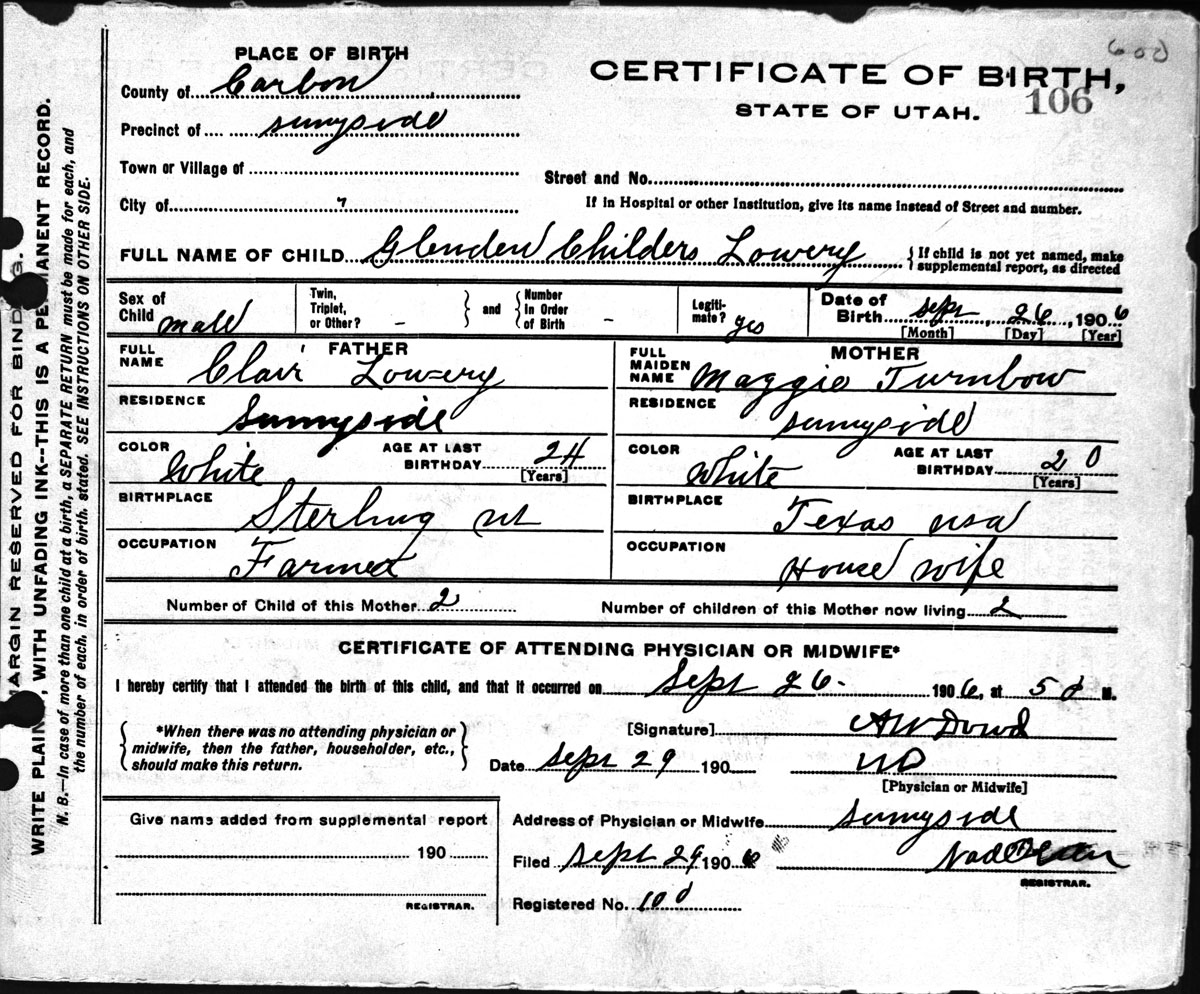 600
PLACE OF BIRTH
CERTIFICATE OF BIRTH,
STATE OF UTAH.
106
County of Carbon
Precinct of sunyside
Town or Village of
City of
Street and No.
If in Hospital or other Institution, give its name instead of Street and number.
FULL NAME OF CHILD Glenden Childers Lowery {If child is not yet named, make supplemental report, as directed
Sex of Child male
Twin, Triplet, or Other? - } and { Number In Order of Birth -
Legiti-mate? yes
Date of Birth sept 26, 1906
[Month] [Day] [Year]
FATHER
FULL NAME Clair Lowery
RESIDENCE Sunnyside
COLOR White AGE AT LAST BIRTHDAY 24
[Years]
BIRTHPLACE Sterling ut
OCCUPATION Farmer
MOTHER
FULL MAIDEN NAME Maggie Turnbow
RESIDENCE sunnyside
COLOR White AGE AT LAST BIRTHDAY 20
[Years]
BIRTHPLACE Texas usa
OCCUPATION House wife
Number of Child of this Mother 2
Number of children of this Mother now living 2
CERTIFICATE OF ATTENDING PHYSICIAN OR MIDWIFE*
I hereby certify that I attended the birth of this child, and that it occurred on Sept 26- 1906, at 5 M.
{ *When there was no attending physician or
midwife, then the father, householder, etc.,
should make this return. }
[Signature] AW Dowd
Date sept 29 190 MD
[Physician or Midwife]
Give name added from supplemental report
190
REGISTRAR.
Address of Physician or Midwife Sunnyside
Filed sept 29 1906
REGISTRAR.
Registered No. 10
MARGIN RESERVED FOR BINDING.
WRITE PLAINLY, WITH UNFADING INK--THIS IS A PERMANENT RECORD.
N. B.—In case of more than one child at a birth, a SEPARATE RETURN must be made for each, and
the number of each, in order of birth, stated. SEE INSTRUCTIONS ON OTHER SIDE.